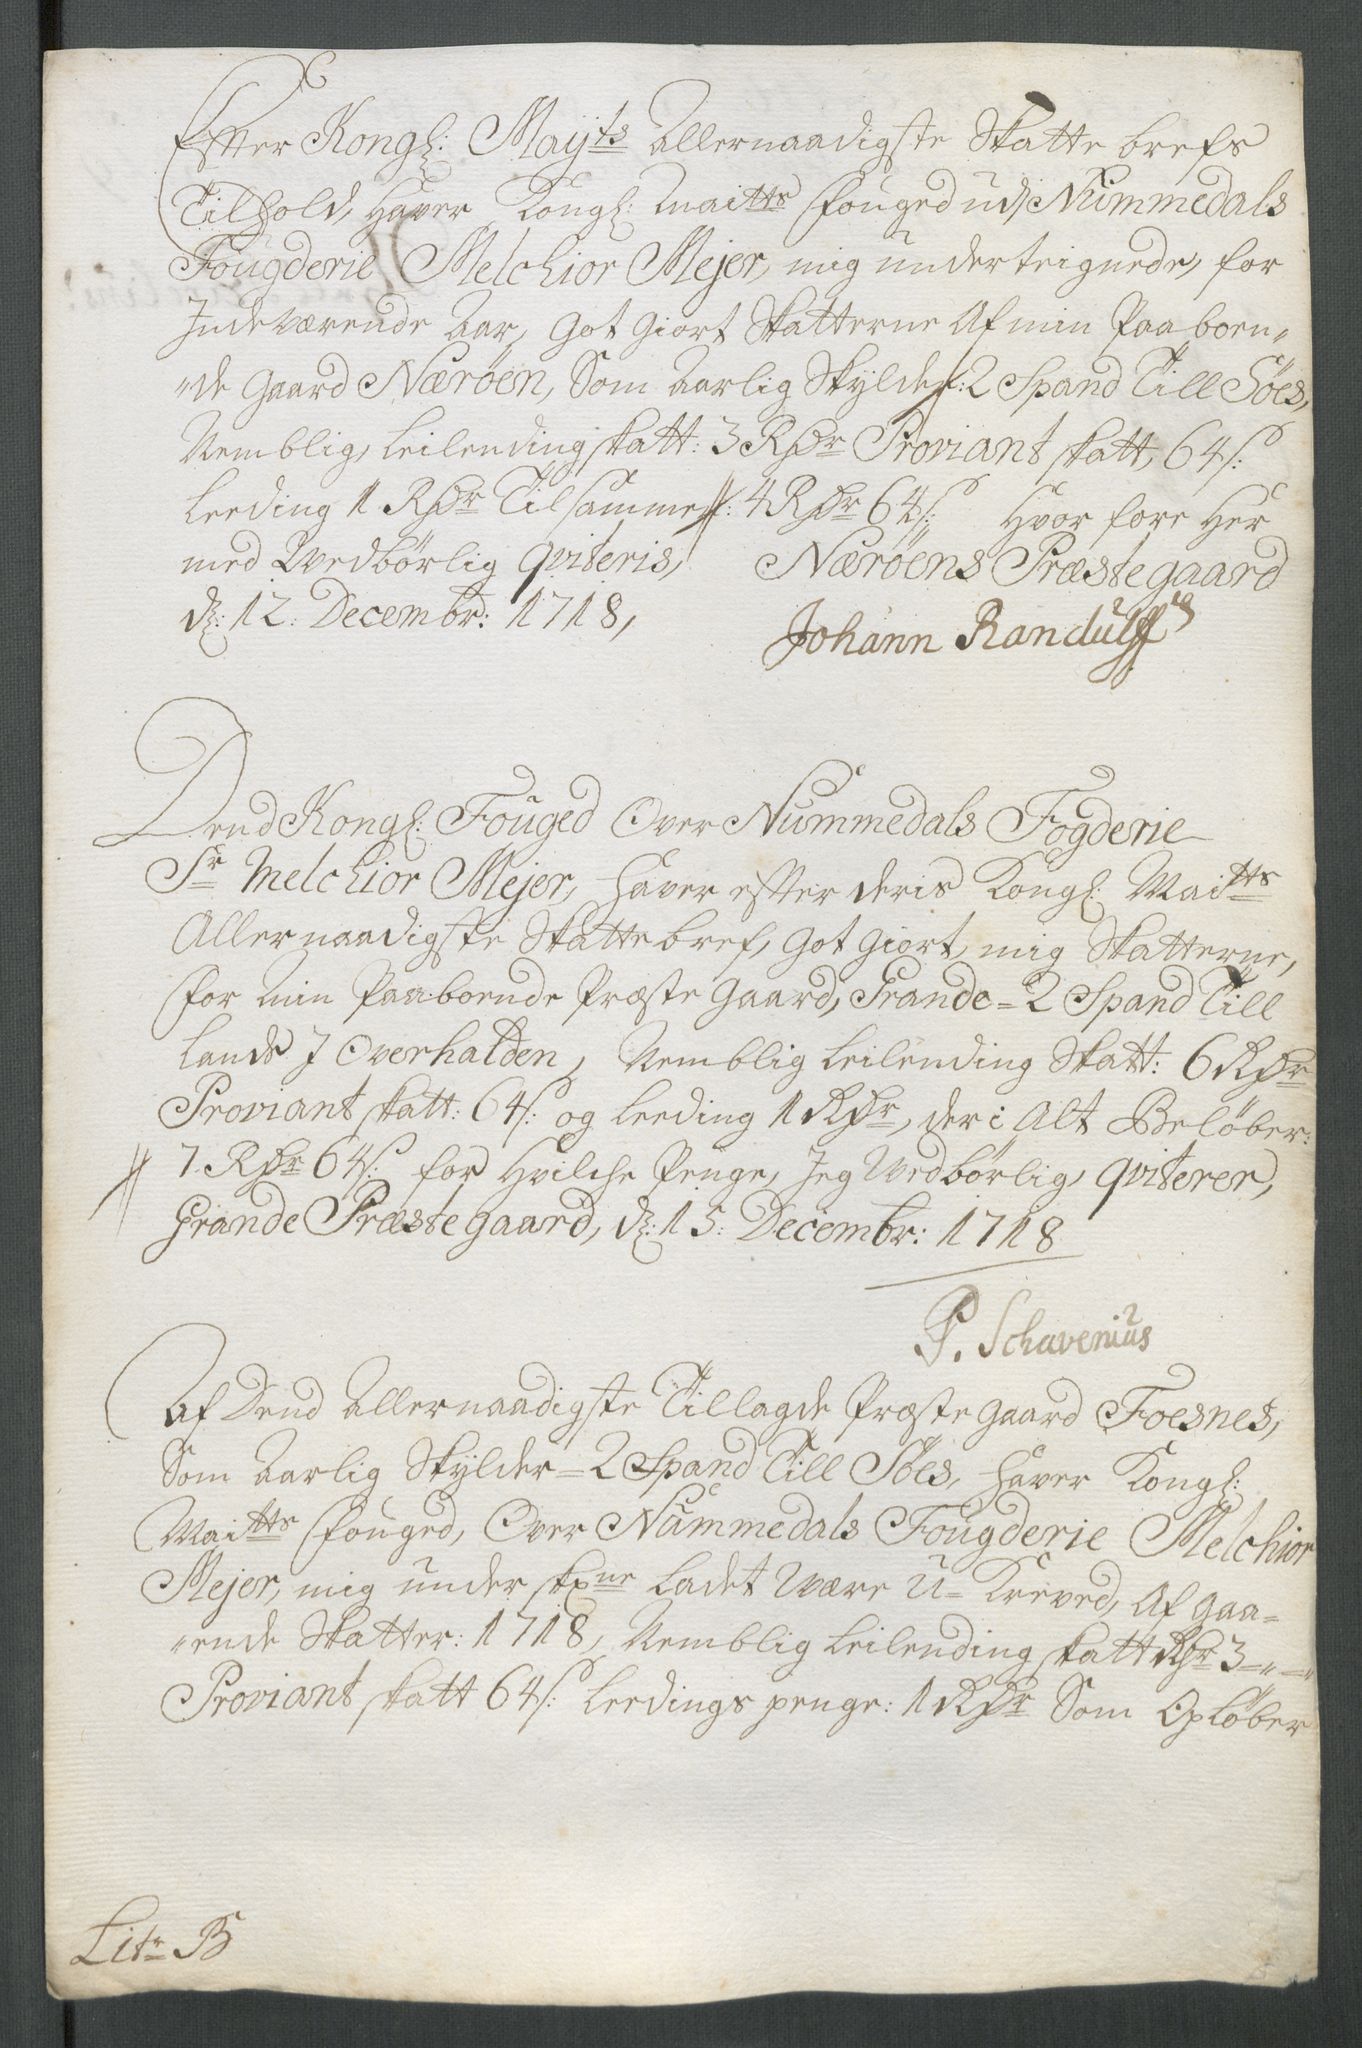 Efter Kongl: Mayts Allernaadigste Skatte brefs
Tilhold, Haver Kongl: Maitts fouged udj Nummedals
Fougderie Melchior Mejer, mig underteignede, for
Indeværende Aar, Got giort Skatterne Af min Paaboen-
-de gaard Nærøen, Som Aarlig Skylder: 2 Spand Till Søes,
Nemblig, Leilending skatt: 3 Rdr Proviant skatt, 64 s:
Leeding 1 Rdr Tilsammen: 4 Rdr 64 s: Hvor fore Her
med Wedbørlig qviteris, Nærøens Præstegaard
d: 12: Decembr: 1718,
Johann Randulff
Dend Kongl: Fouged Over Nummedals Fogderie
Sr Melchior Mejer, haver efter deris Kongl: Maitts
Allernaadigste Skattebref, Got giort, mig Skatterne,
for Min Paaboende Præste gaard, Grande = 2 Spand Till
Lands J Overhalden, Nemblig Leilending Skatt: 6 Rdr
Proviant skatt: 64 s: og Leeding 1 Rdr, der i Alt Beløber:
7. Rdr 64 s: for Hvilche Penge, Jeg Wedbørlig, qviterer,
Grande Præstegaard, d: 15: Decembr: 1718
P. Schavenius
Af Dend Allernaadigste Tillagde Præste gaard Foesnes,
Som Aarlig Skylder = 2 Spand Till Søes, haver Kongl:
Maitts fouged, Over Nummedals Fougderie Melchior
Mejer, mig under skrne Ladet Være U= Kreved, Af gaa-
-ende Skatter: 1718, Nemblig Leilending skatt Rdr 3=,,=,,
Proviant skatt 64 s: Leedings penge: 1 Rdr Som Opløber
Litr B